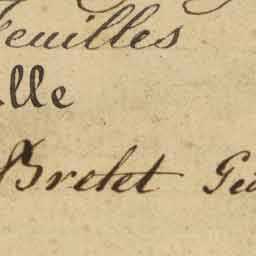 Feuilles
lle
Brelet Gé